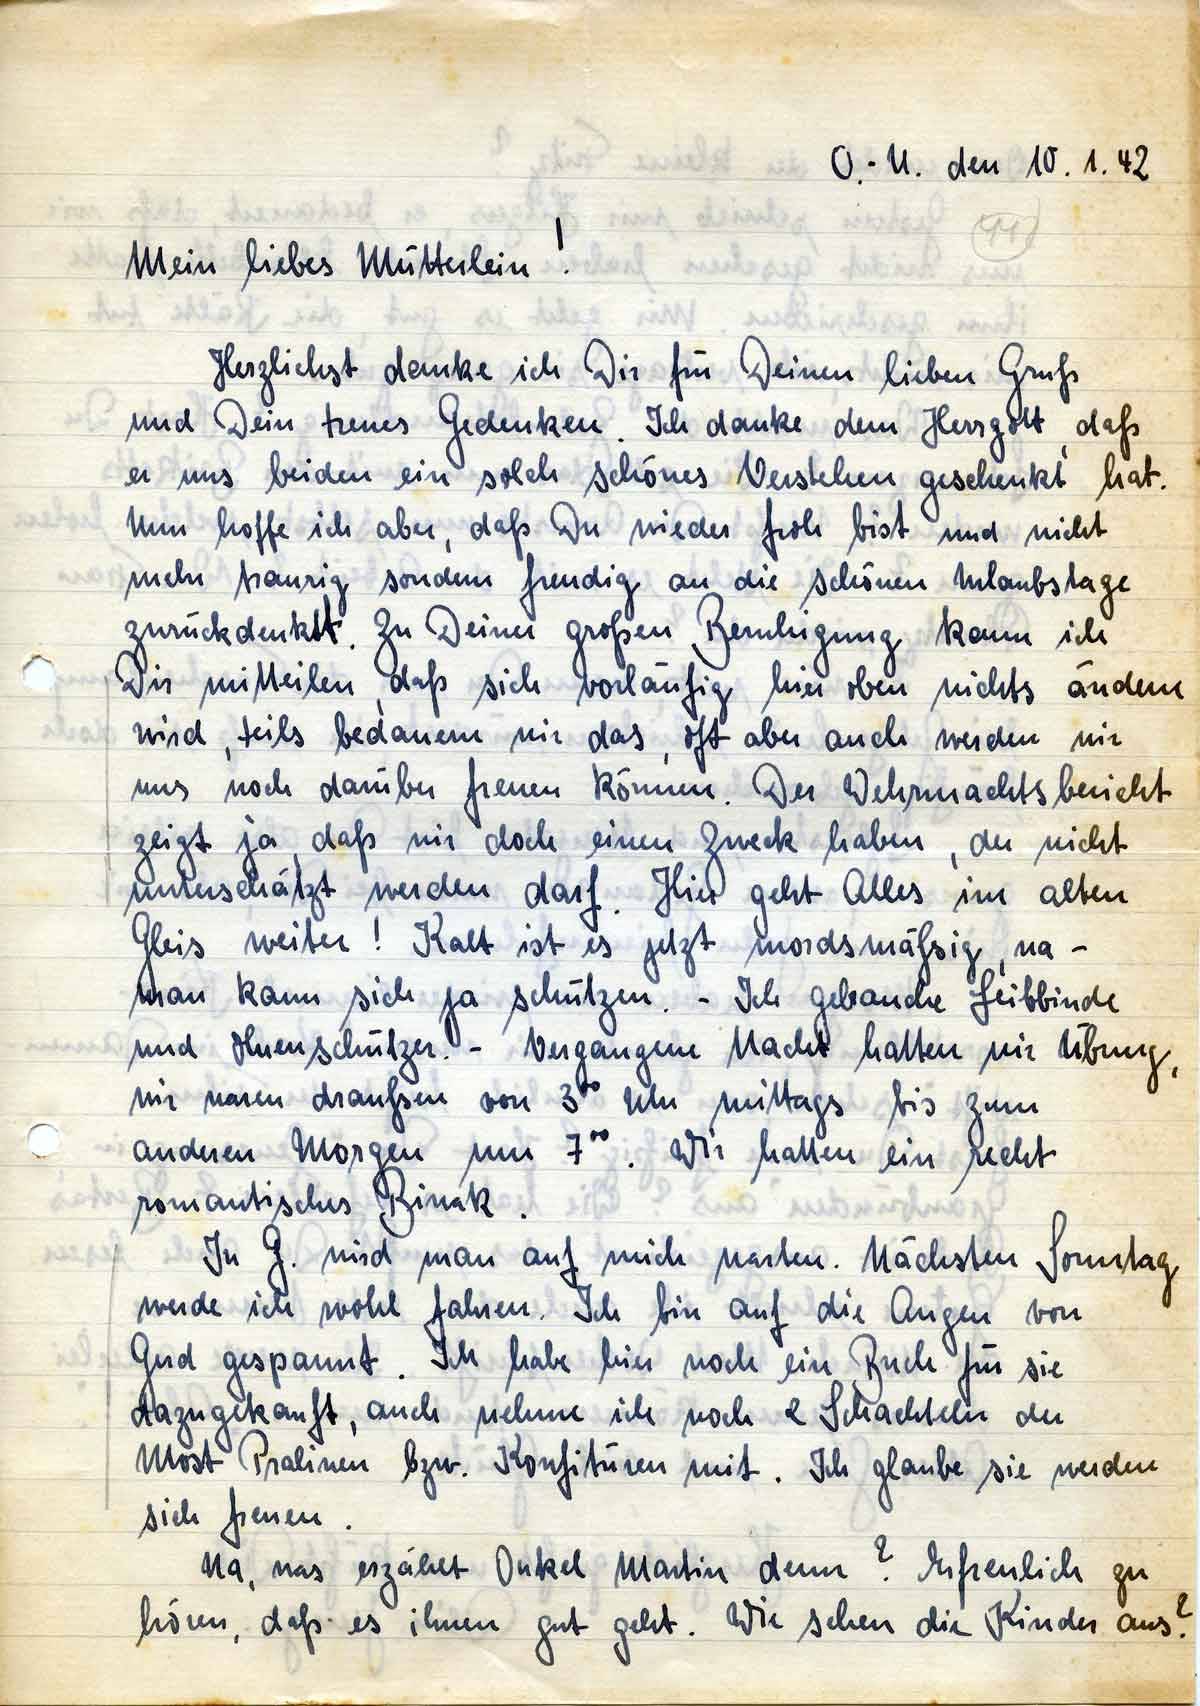 O.-U. den 10.1.42
Mein liebes Mütterlein!
Herzlichst danke ich Dir für Deinen lieben Gruß
und Dein treues Gedenken. Ich danke dem Herrgott, daß
er uns beiden ein solch schönes Verstehen geschenkt hat.
Nun hoffe ich aber, daß Du wieder froh bist und nicht
mehr traurig sondern freudig an die schönen Urlaubstage
zurückdenkst. Zu Deiner großen Beruhigung kann ich
Dir mitteilen, daß sich vorläufig hier oben nichts ändern
wird, teils bedauern wir das, oft aber auch werden wir
uns noch darüber freuen können. Der Wehrmachtsbericht
zeigt ja, daß wir doch einen Zweck haben, der nicht
unterschätzt werden darf. Hier geht Alles im alten
Gleis weiter! Kalt ist es jetzt mordsmäßig, na -
man kann sich ja schützen. - Ich gebauche Leibbinde
und Ohrenschützer. - Vergangene Nacht hatten wir Übung,
wir waren draußen von 3⁰⁰ Uhr mittags bis zum
anderen Morgen um 7⁰⁰. Wir hatten ein recht
romantisches Biwak.
In G. wird man auf mich warten. Nächsten Sonntag
werde ich wohl fahren. Ich bin auf die Augen von
Gud gespannt. Ich habe hier noch ein Buch für sie
dazugekauft, auch nehme ich noch 2 Schachteln der
Most Pralinen bzw. Konfitüren mit. Ich glaube sie werden
sich freuen.
Na, was erzählt Onkel Martin denn? Erfreulich zu
hören, daß es ihnen gut geht. Wie sehen die Kinder aus?